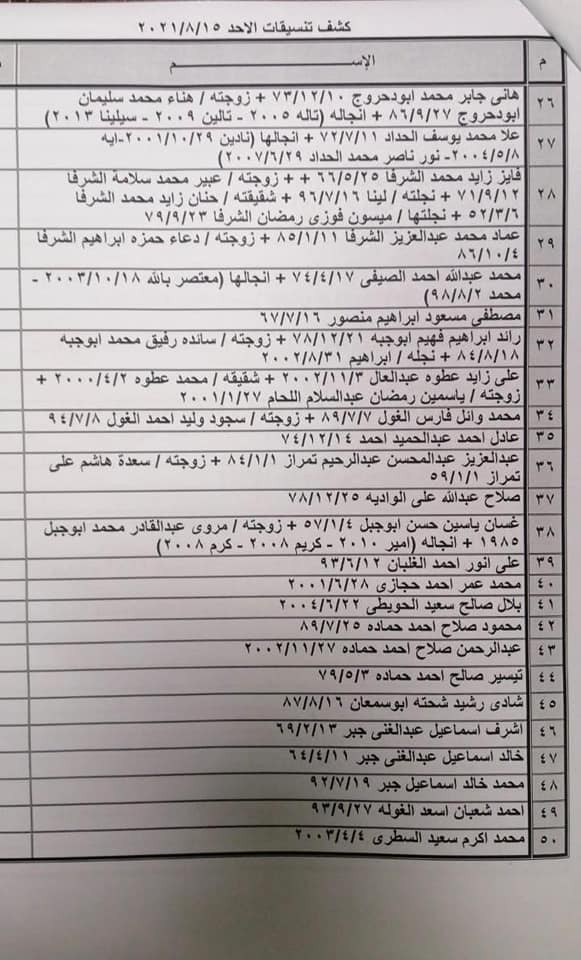 كشف تنسيقات الاحد ٢٠٢١/٨/١٥
م الإســــــــــــم
٢٦ هانى جابر محمد ابودحروج ٧٣/١٢/١٠ + زوجته / هناء محمد سليمان
ابودحروج ٨٦/٩/٢٧ + انجاله (تاله ٢٠٠٥ - تالين ٢٠٠٩ - سيلينا ٢٠١٣)
٢٧ علا محمد يوسف الحداد ٧٢/٧/١١ + انجالها (نادين ٢٠٠١/١٠/٢٩-ايه
٢٠٠٤/٥/٨- نور ناصر محمد الحداد ٢٠٠٧/٦/٢٩)
٢٨ فايز زايد محمد الشرفا ٦٦/٥/٢٥ + + زوجته / عبير محمد سلامة الشرفا
٧١/٩/١٢ + نجلته / لينا ٩٦/٧/١٦ + شقيقته / حنان زايد محمد الشرفا
٥٢/٣/٦ + نجلتها / ميسون فوزى رمضان الشرفا ٧٩/٩/٢٣
٢٩ عماد محمد عبدالعزيز الشرفا ٨٥/١/١١ + زوجته / دعاء حمزه ابراهيم الشرفا
٨٦/١٠/٤
٣٠ محمد عبدالله احمد الصيفى ٧٤/٤/١٧ + انجالها (معتصر بالله ٢٠٠٣/١٠/١٨ -
محمد ٩٨/٨/٢)
٣١ مصطفى مسعود ابراهيم منصور ٦٧/٧/١٦
٣٢ رائد ابراهيم فهيم ابوجبه ٧٨/١٢/٢١ + زوجته / سائده رفيق محمد ابوجبه
٨٤/٨/١٨ + نجله / ابراهيم ٢٠٠٢/٨/٣١
٣٣ على زايد عطوه عبدالعال ٢٠٠٢/١١/٣ + شقيقه / محمد عطوه ٢٠٠٠/٤/٢ +
زوجته / ياسمين رمضان عبدالسلام اللحام ٢٠٠١/١/٢٧
٣٤ محمد وائل فارس الغول ٨٩/٧/٧ + زوجته / سجود وليد احمد الغول ٩٤/٧/٨
٣٥ عادل احمد عبدالحميد احمد ٧٤/١٢/١٤
٣٦ عبدالعزيز عبدالمحسن عبدالرحيم تمراز ٨٤/١/١ + زوجته / سعدة هاشم على
تمراز ٥٩/١/١
٣٧ صلاح عبدالله على الواديه ٧٨/١٢/٢٥
٣٨ غسان ياسين حسن ابوجبل ٥٧/١/٤ + زوجته / مروى عبدالقادر محمد ابوجبل
١٩٨٥ + انجاله (امير ٢٠١٠ - كريم ٢٠٠٨ - كرم ٢٠٠٨)
٣٩ على انور احمد الغلبان ٩٣/٦/١٢
٤٠ محمد عمر احمد حجازى ٢٠٠١/٦/٢٨
٤١ بلال صالح سعيد الحويطى ٢٠٠٤/٦/٢٢
٤٢ محمود صلاح احمد حماده ٨٩/٧/٢٥
٤٣ عبدالرحمن صلاح احمد حماده ٢٠٠٢/١١/٢٧
٤٤ تيسير صالح احمد حماده ٧٩/٥/٣
٤٥ شادى رشيد شحته ابوسمعان ٨٧/٨/١٦
٤٦ اشرف اسماعيل عبدالغنى جبر ٦٩/٢/١٣
٤٧ خالد اسماعيل عبدالغنى جبر ٦٤/٤/١١
٤٨ محمد خالد اسماعيل جبر ٩٢/٧/١٩
٤٩ احمد شعبان اسعد الغوله ٩٣/٩/٢٧
٥٠ محمد اكرم سعيد السطرى ٢٠٠٣/٤/٤